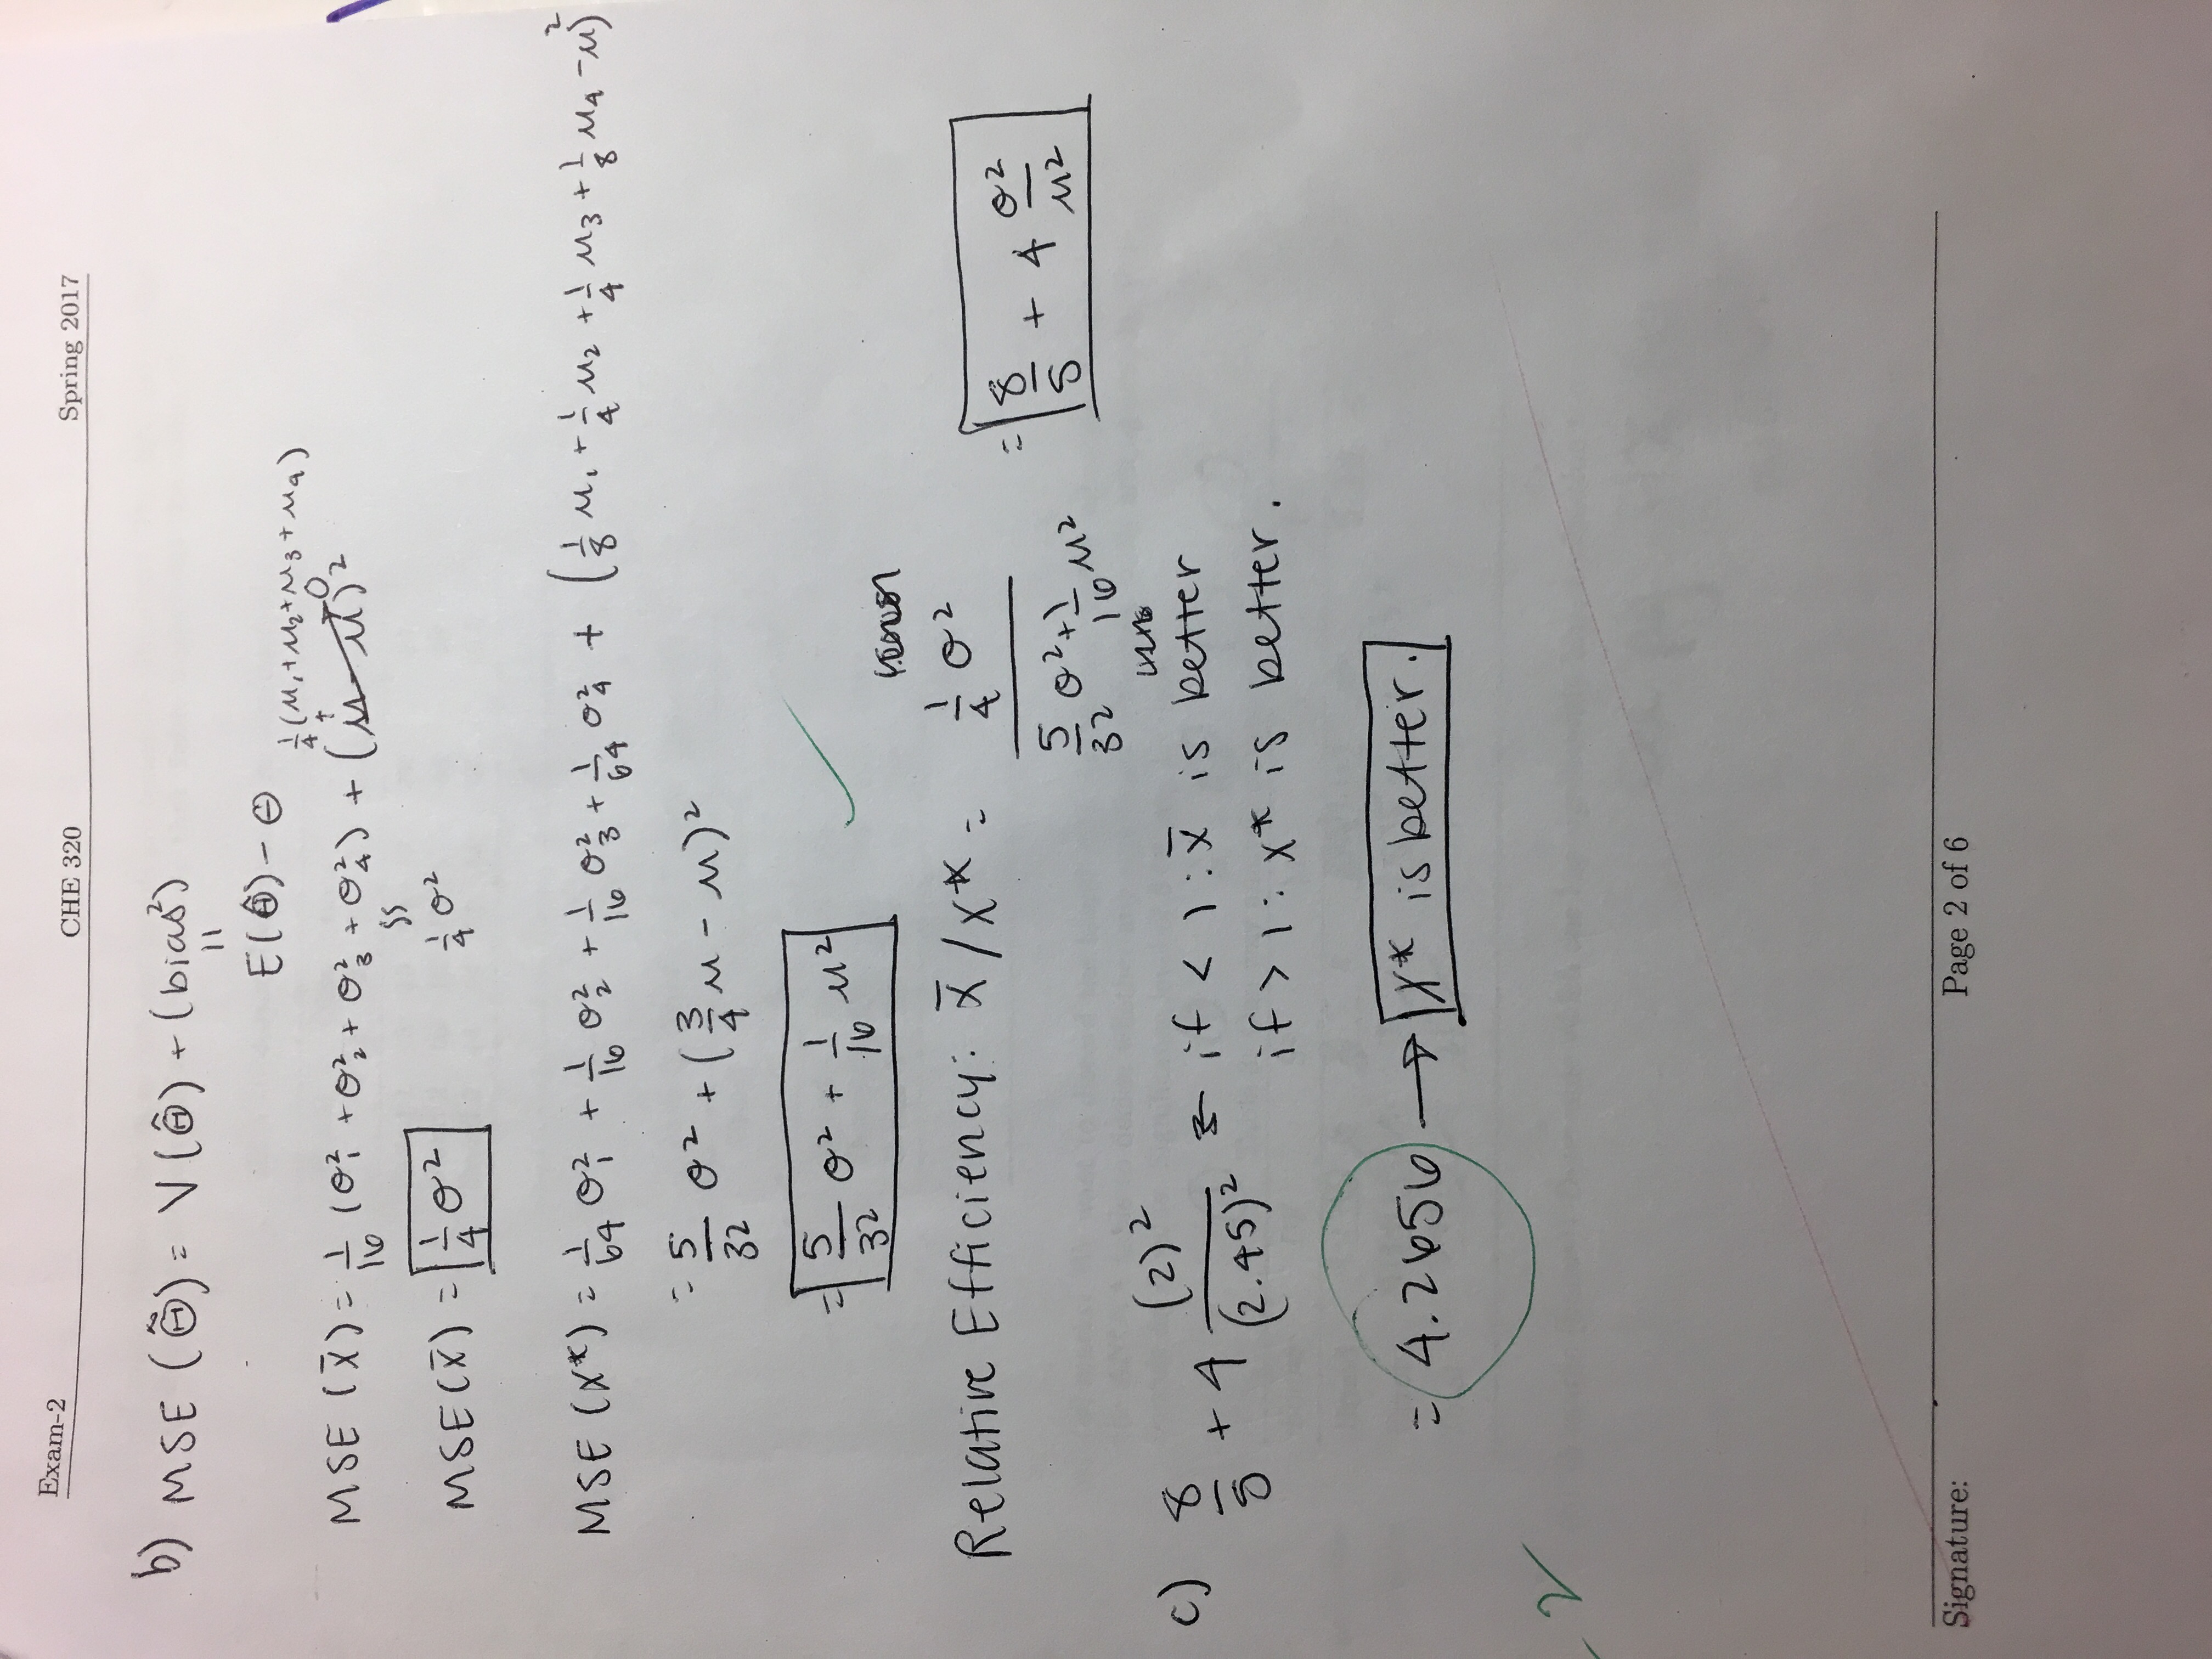 Exam-2 CHE 320 Spring 2017
b) MSE (Θ̂) = V(Θ̂) + (bias²)
11
E(Θ̂) - Θ
1/4 (μ₁+μ₂+μ₃+μ₄)
MSE (x̄) = 1/16 (σ₁² + σ₂² + σ₃² + σ₄²) + (μ - μ)² 0
SS
MSE(x̄) = 1/4 σ² 1/4 σ²
MSE (x*) = 1/64 σ₁² + 1/16 σ₂² + 1/16 σ₃² + 1/64 σ₄² + (1/8 μ₁ + 1/4 μ₂ + 1/4 μ₃ + 1/8 μ₄ - μ)²
= 5/32 σ² + (3/4 μ - μ)²
= 5/32 σ² + 1/16 μ²
Relative Efficiency: x̄ / x* = 1/4 σ² / 5/32 σ² + 1/16 μ² = 8/5 + 4 σ²/μ²
c) 8/5 + 4 (2)²/(2.45)² if < 1 : x̄ is better
if > 1 : x* is better.
= 4.2656 → x* is better.
-2
Signature: Page 2 of 6